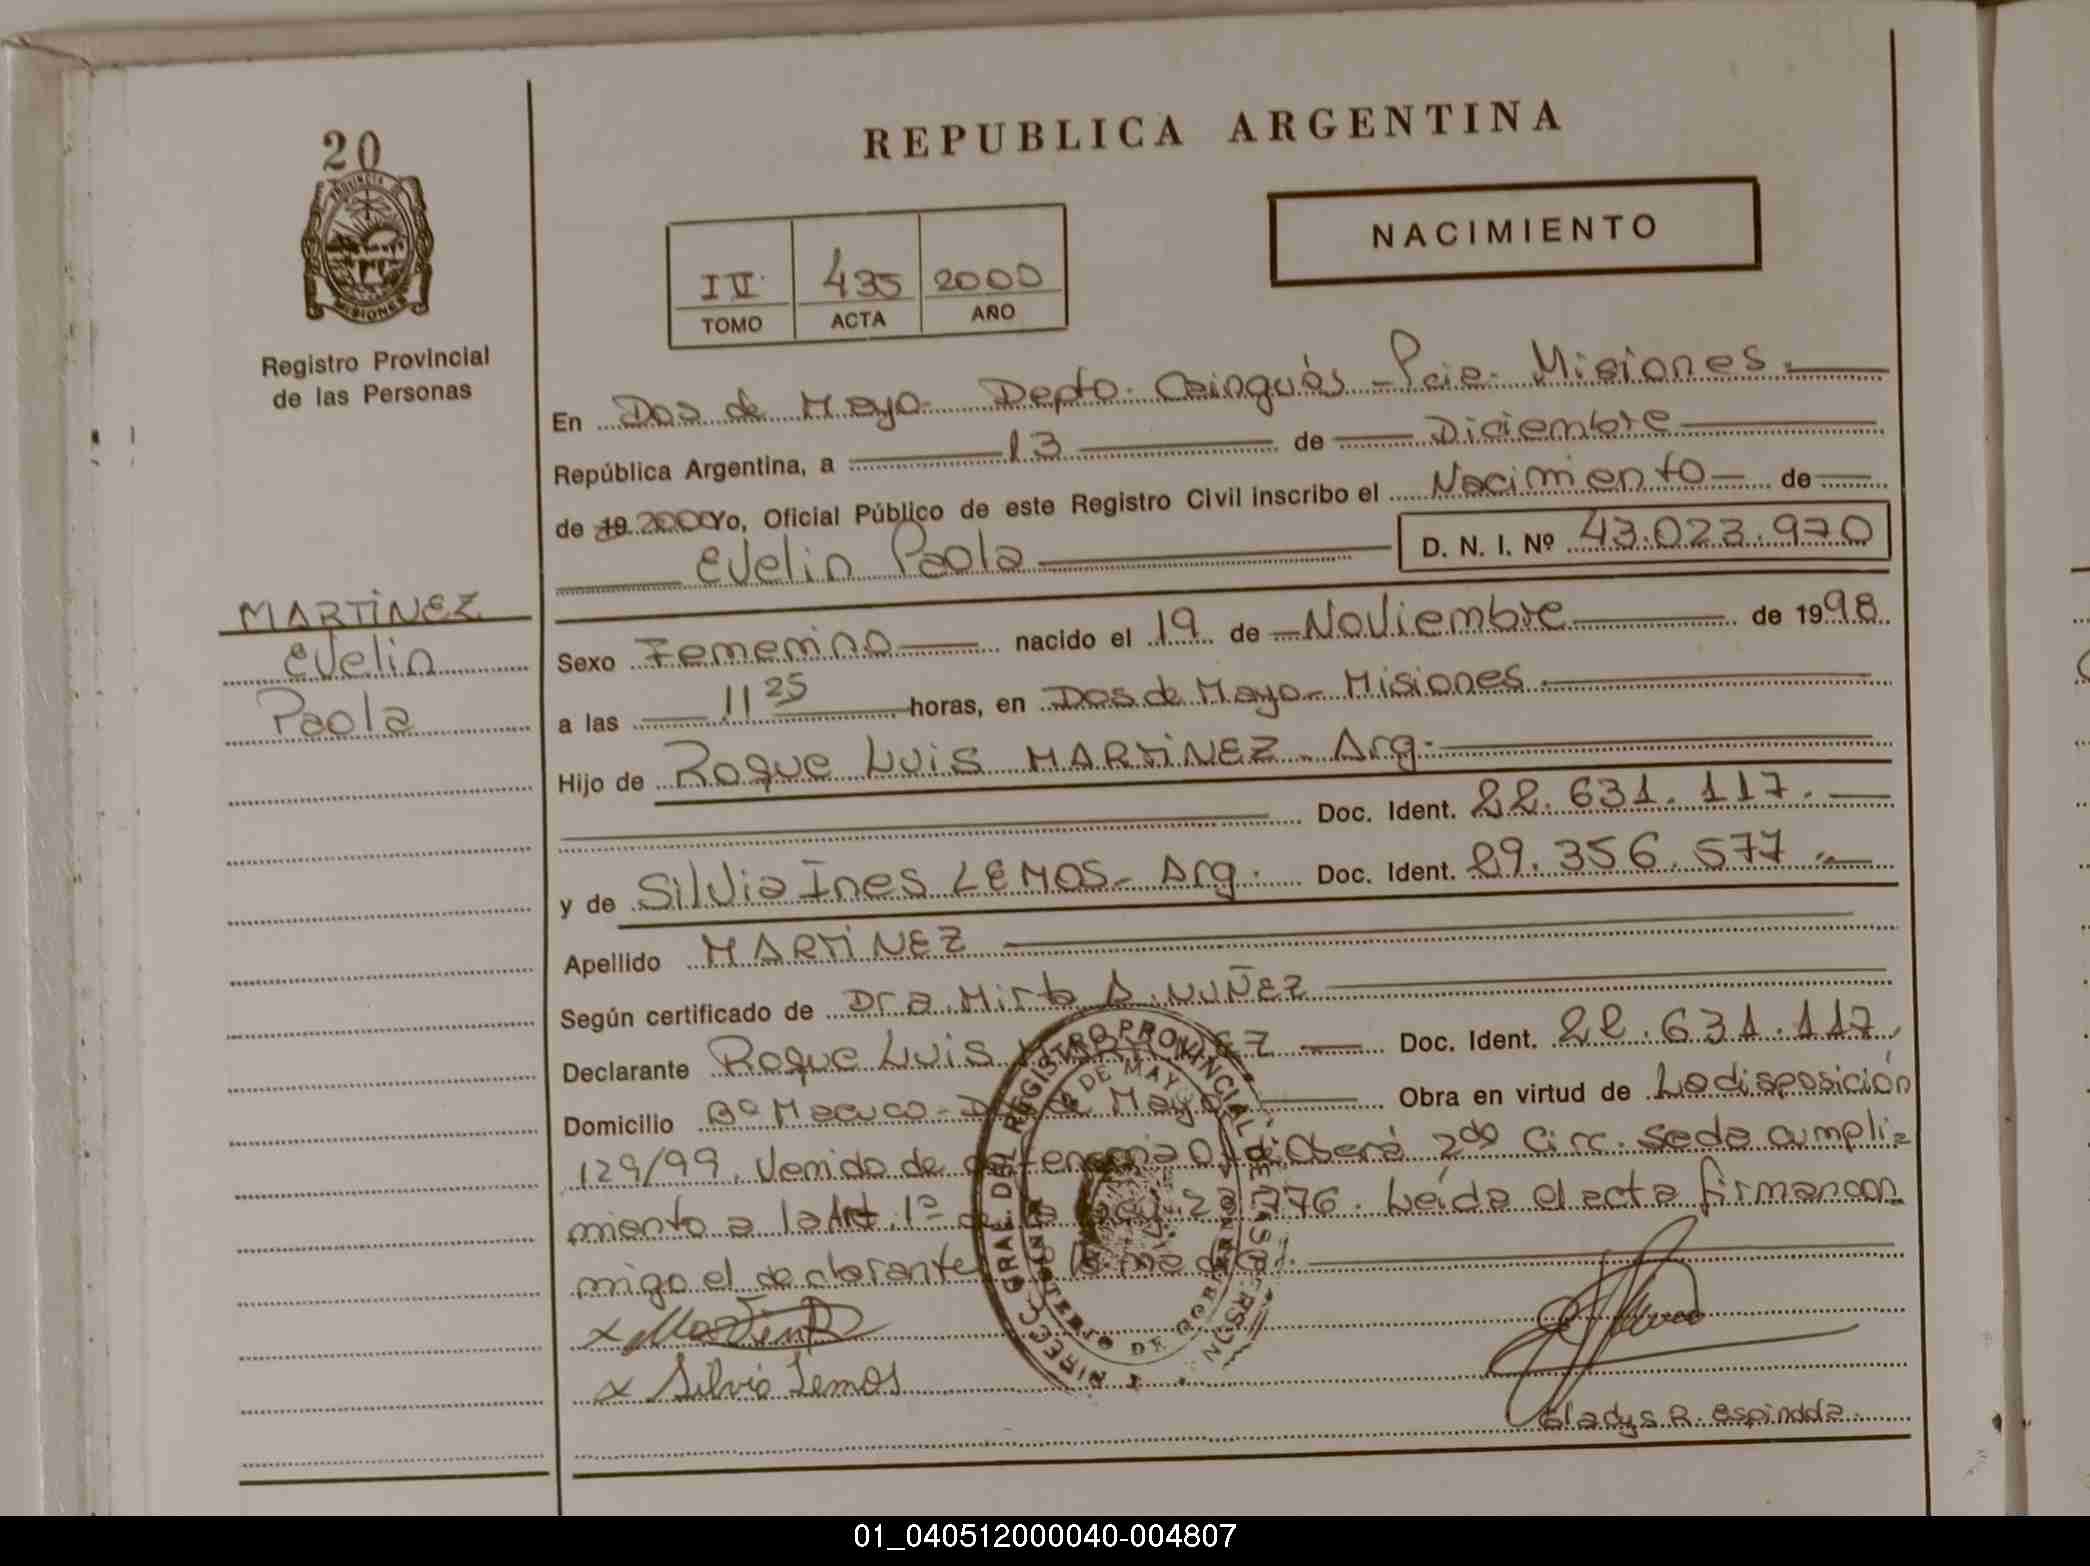 20
PROVINCIA DE
MISIONES
Registro Provincial
de las Personas
REPUBLICA ARGENTINA
NACIMIENTO
IV 435 2000
TOMO ACTA AÑO
En Dos de Mayo - Depto. Cainguás - Pcia. Misiones.
República Argentina, a 13 de Diciembre
de 19 2000 Yo, Oficial Público de este Registro Civil inscribo el Nacimiento de
Evelin Paola D. N. I. Nº 43.023.970
MARTINEZ
Evelin
Paola
Sexo Femenino nacido el 19 de Noviembre de 1998
a las 11 25 horas, en Dos de Mayo - Misiones
Hijo de Roque Luis MARTINEZ - Arg.
Doc. Ident. 22.631.117.
y de Silvia Ines LEMOS - Arg. Doc. Ident. 29.356.577
Apellido MARTINEZ
Según certificado de Dra. Mirta A. NUÑEZ
Declarante Roque Luis Doc. Ident. 22.631.117
Domicilio Bº Macuco - Dos de Mayo Obra en virtud de La disposición
129/99. Venido de Oberá 2da Circ. se da cumpli-
miento a la Art. 1º de la Ley 776. Leída el acta firman con
migo el declarante
x Martinez
x Silvia Lemos
Gladys R. Espindola
DIRECC. GRAL. DEL REGISTRO PROVINCIAL DE LAS PERSONAS
DE MAYO
MINISTERIO DE GOBIERNO
01_040512000040-004807